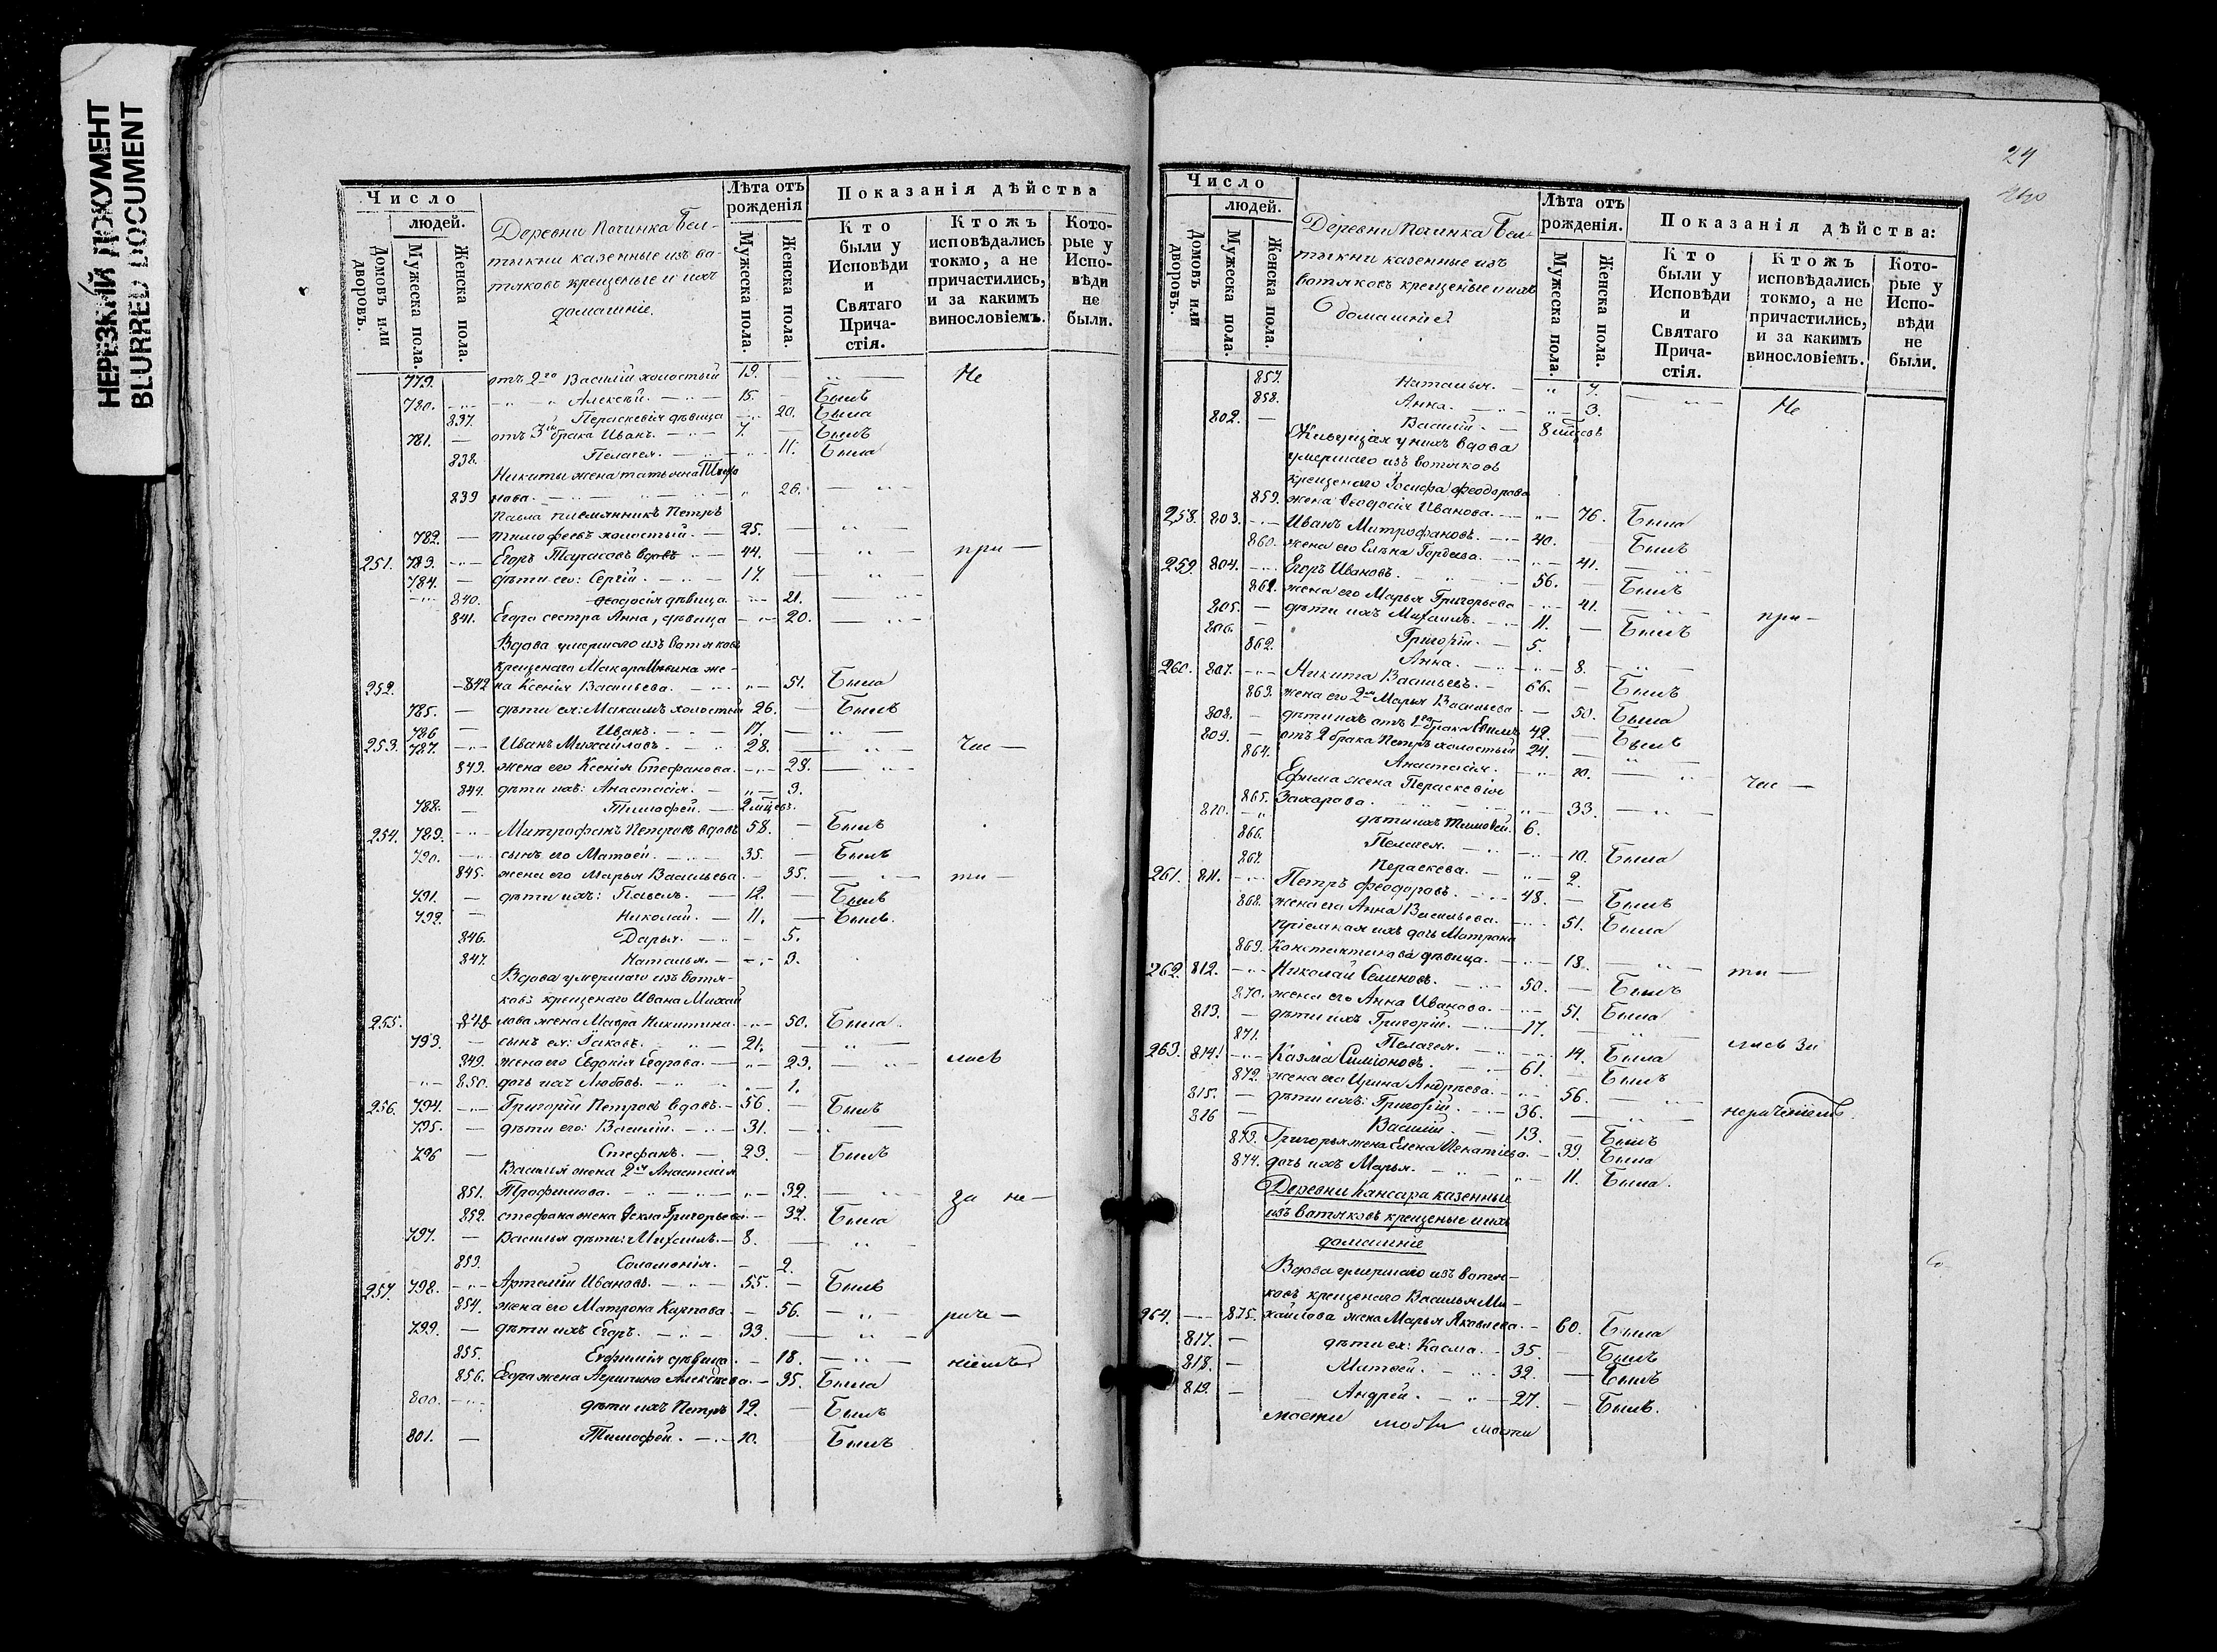 НЕРЕЗКИЙ ДОКУМЕНТ
BLURRED DOCUMENT
Число
людей.
Домовъ или дворовъ.
Мужеска пола.
Женска пола.
Деревни Починка Бел-
тыкни казенные изъ во-
тяковъ крещеные и ихъ
домашніе.
Лѣта отъ рожденія
Мужеска пола.
Женска пола.
Показанія дѣйства
Кто были у Исповѣди и Святаго Прича-стія.
Ктожъ исповѣдались токмо, а не причастились, и за какимъ винословіемъ.
Кото-рые у Испо-вѣди не были.
779. отъ 2го Василій холостый 19. Не
780. Алексѣй. 15. Былъ
837. Пераскевія дѣвица 20. Была
781. отъ 3й брака Иванъ. 7. Былъ
838. Пелагея. 11. Была
Никиты жена Татьяна
839 26.
Павла племянникъ Петръ
782. Тимофеевъ холостый. 25.
251. 783. Егоръ вдовъ 44. при
784. дѣти его: Сергій. 17.
840. Феодосія дѣвица. 21.
841. Егора сестра Анна, дѣвица 20.
Вдова умершаго изъ вотяковъ
крещенаго Макара же-
252. 842 на Ксенія Васильева. 51. Была
785. дѣти ея: Максимъ холостый 26. Былъ
786 Иванъ. 17.
253. 787. Иванъ Михайловъ 28. час
843. жена его Ксенія Стефанова. 28.
844. дѣти ихъ: Анастасія. 3.
788. Тимофей. 2 мцевъ.
254. 789. Митрофанъ Петровъ вдовъ 58. Былъ
790. сынъ его Матвей. 35. Былъ
845. жена его Марья Васильева 35. ти
791. дѣти ихъ: Павелъ. 12. Былъ
792. Николай. 11. Былъ.
846. Дарья. 5.
847. Наталья. 3.
Вдова умершаго изъ вотя-
ковъ крещенаго Ивана Михай
255. 848 лова жена Мавра Никитина 50. Была.
793. сынъ ея: Іаковъ. 21.
849. жена его Евдокія Егорова. 23. лисъ
850. дочь ихъ Любовь. 1.
256. 794. Григорій Петровъ вдовъ. 56. Былъ
795. дѣти его: Василій. 31.
796 Стефанъ. 23. Былъ
Василія жена 2я Анастасія
851. Трофимова. 32. за не
852. Стефана жена Фекла Григорьева 32. Была
797. Василья дѣти: Михаилъ. 8.
853. Соломонія. 2.
257. 798. Артемій Ивановъ. 55. Былъ
854. жена его Матрона Карпова 56. раче
799. дѣти ихъ Егоръ. 33.
855. Евфимія дѣвица. 18. ніемъ
856. Егора жена Алексѣева 35. Была
800. дѣти ихъ Петръ 12. Былъ
801. Тимофей. 10. Былъ
24
Число
людей.
Домовъ или дворовъ.
Мужеска пола.
Женска пола.
Деревни Починка Бел-
тыкни казенные изъ
вотяковъ крещеные и ихъ
домашніе.
Лѣта отъ рожденія.
Мужеска пола.
Женска пола.
Показанія дѣйства:
Кто были у Исповѣди и Святаго Прича-стія.
Ктожъ исповѣдались токмо, а не причастились, и за какимъ винословіемъ.
Кото-рые у Испо-вѣди не были.
857. Наталья. 7.
858. Анна. 3. Не
802. Василій. 8 мцовъ
Живущая у нихъ вдова
умершаго изъ вотяковъ
крещенаго Іосифа Феодорова
859. жена Феодосія Иванова. 76. Была
258. 803. Иванъ Митрофановъ. 40. Былъ
860. жена его Елена Гордеева. 41.
259. 804. Егоръ Ивановъ. 56. Былъ
861. жена его Марья Григорьева 41.
805. дѣти ихъ Михаилъ. 11. Былъ при
806. Григорій. 5.
862. Анна. 8.
260. 807. Никита Васильевъ. 66. Былъ
863. жена его 2я Марья Васильева 50. Была
808. дѣти ихъ отъ 1го брака 42. Былъ
809. отъ 2 брака Петръ холостый 24.
864. Анастасія. 10.
Ефима жена Пераскевія час
865. Захарова. 33.
810. дѣти ихъ Тимофей. 6.
866. Пелагея. 10. Была
867. Пераскева. 2.
261. 811. Петръ Феодоровъ. 48. Былъ
868. жена его Анна Васильева. 51. Была
пріемная ихъ дочь Матрона
869. Константинова дѣвица. 18. ти
262. 812. Николай Семеновъ. 50. Былъ
870. жена его Анна Иванова. 51. Была
813. дѣти ихъ Григорій. 17.
871. Пелагея. 14. Была лись за
263. 814. Казма Симіоновъ. 61. Былъ
872. жена его Ирина Андрѣева. 56.
815. дѣти ихъ: Григорій. 36.
816 Василій. 13. Былъ
873. Григорья жена Елена Игнатіева. 39. Была
874. дочь ихъ Марья. 11. Была.
Деревни Кансара казенные
изъ вотяковъ крещеные и ихъ
домашніе
Вдова умершаго изъ вотя-
ковъ крещенаго Василья Ми-
264. 875. хайлова жена Марья Яковлева. 60. Была
817. дѣти ея: Касма. 35. Былъ
818. Матвей. 32. Былъ
819. Андрей. 27. Былъ.